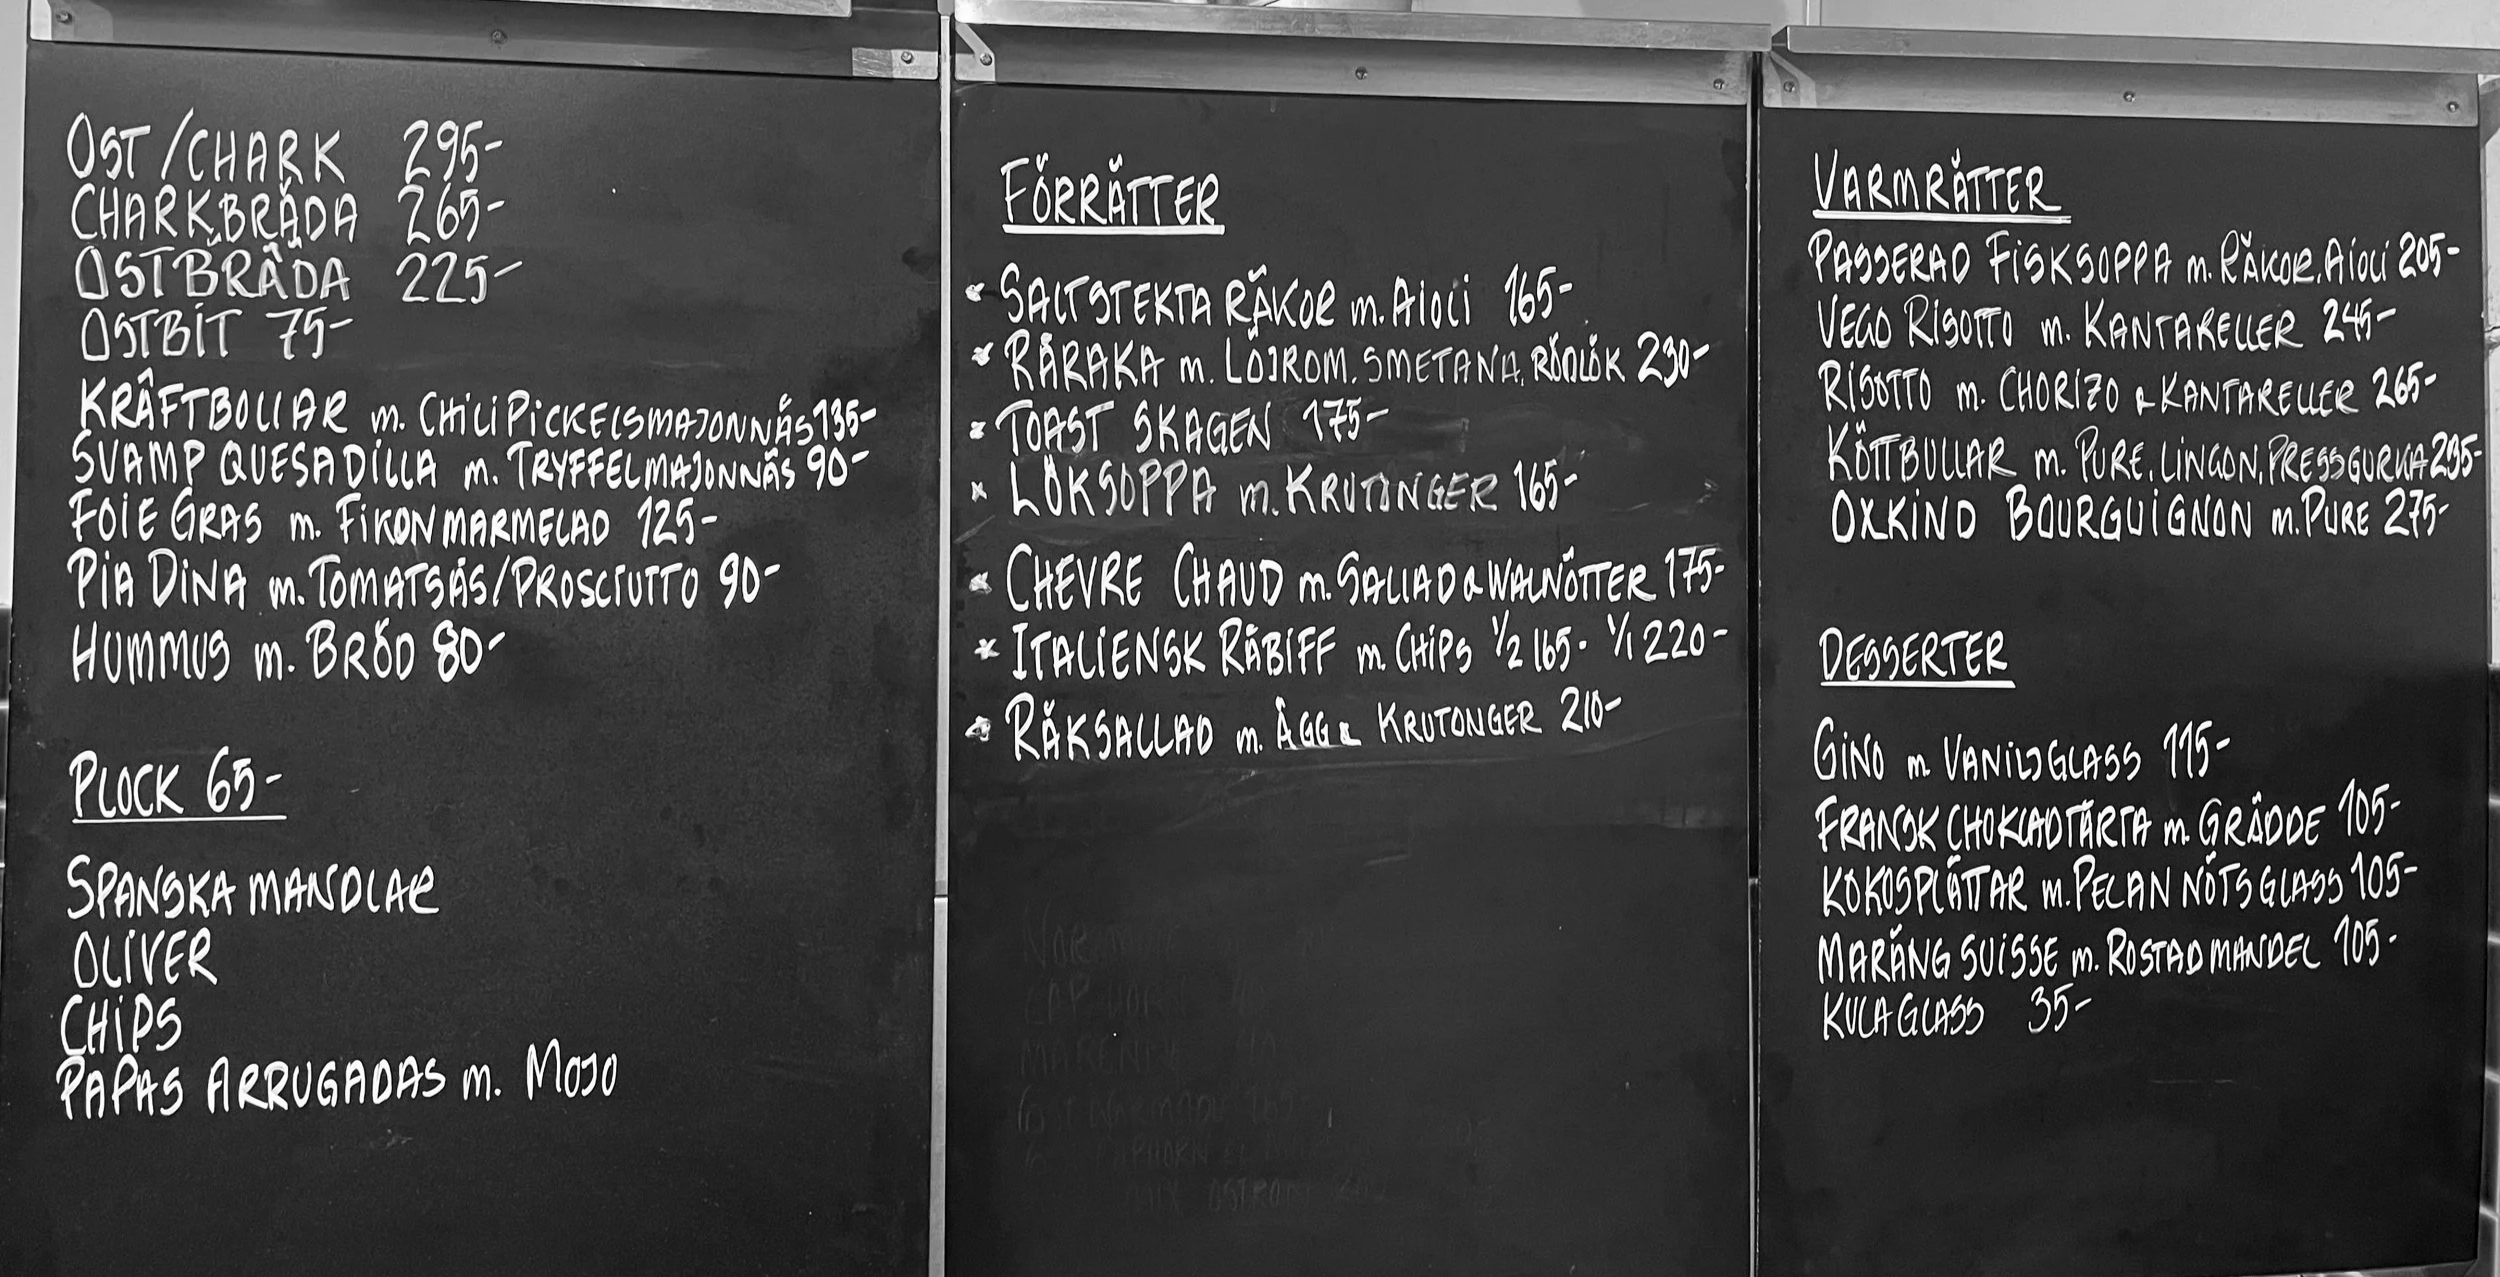 OST/CHARK 295-
CHARKBRÄDA 265-
OSTBRÄDA 225-
OSTBIT 75-
KRÄFTBOLLAR m. CHILIPICKELSMAJONNÄS 135-
SVAMP QUESADILLA m. TRYFFELMAJONNÄS 90-
FOIE GRAS m. FIKONMARMELAD 125-
PIADINA m. TOMATSÅS/PROSCIUTTO 90-
HUMMUS m. BRÖD 80-
PLOCK 65-
SPANSKA MANDLAR
OLIVER
CHIPS
PAPAS ARRUGADAS m. MOJO
FÖRRÄTTER
SALTSTEKTA RÄKOR m. AIOLI 165-
RÅRAKA m. LÖJROM, SMETANA, RÖDLÖK 230-
TOAST SKAGEN 175-
LÖKSOPPA m. KRUTONGER 165-
CHEVRE CHAUD m. SALLAD & WALNÖTTER 175-
ITALIENSK RÅBIFF m. CHIPS 1/2 165- 1/1 220-
RÄKSALLAD m. ÄGG & KRUTONGER 210-
VARMRÄTTER
PASSERAD FISKSOPPA m. RÄKOR, AIOLI 205-
VEGO RISOTTO m. KANTARELLER 245-
RISOTTO m. CHORIZO & KANTARELLER 265-
KÖTTBULLAR m. PURE, LINGON, PRESSGURKA 235-
OXKIND BOURGUIGNON m. PURE 275-
DESSERTER
GINO m VANILJGLASS 115-
FRANSK CHOKLADTÅRTA m. GRÄDDE 105-
KOKOSPLÄTTAR m. PECAN NÖTSGLASS 105-
MARÄNG SUISSE m. ROSTAD MANDEL 105-
KULA GLASS 35-